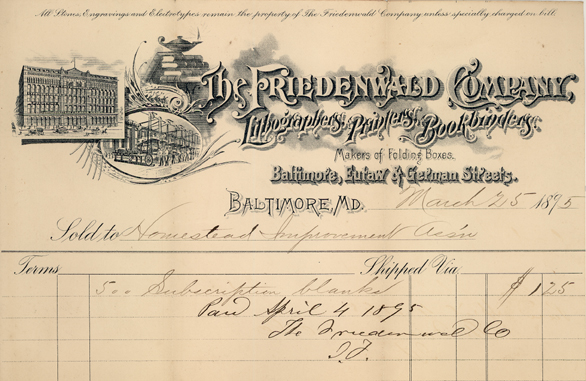 All Stones, Engravings and Electrotypes remain the property of The Friedenwald Company unless specially charged on bill.
The Friedenwald Company,
Lithographers, Printers, Bookbinders.
Makers of Folding Boxes.
Baltimore, Eutaw & German Streets.
Baltimore, MD. March 25 1895
Sold to Homestead Improvement Ass'n
Terms Shipped Via
500 Subscription blanks $ 1.25
Paid April 4 1895
The Friedenwald Co